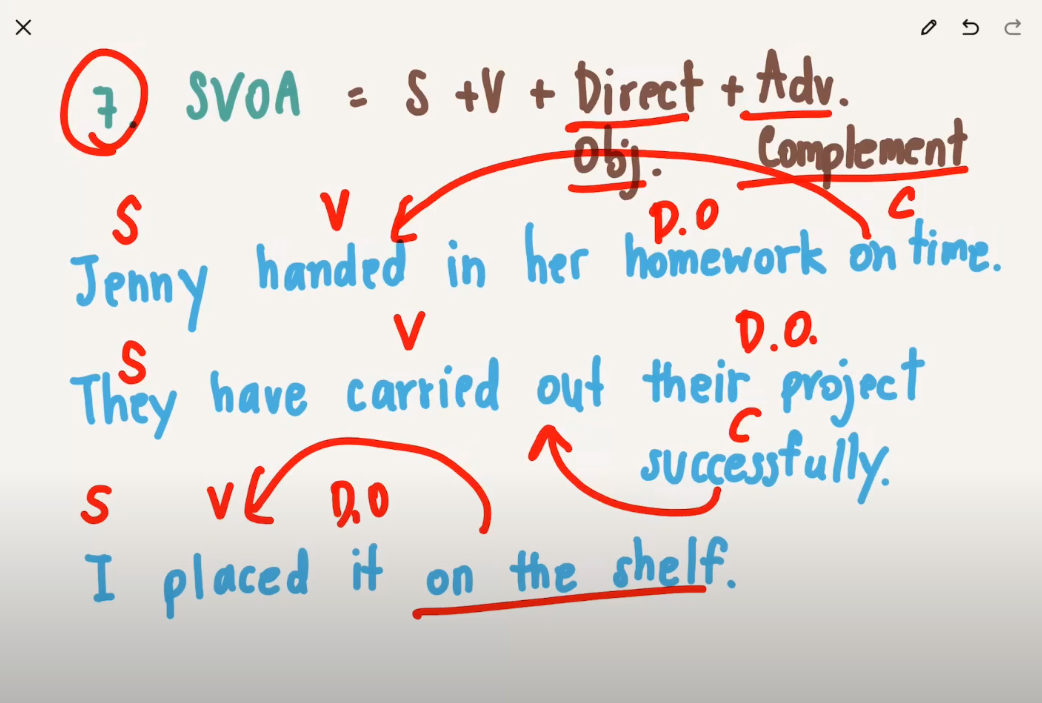 7. SVOA = S + V + Direct + Adv.
Obj. Complement
S V D.O C
Jenny handed in her homework on time.
S V D.O.
They have carried out their project
C
successfully.
S V D.O
I placed it on the shelf.